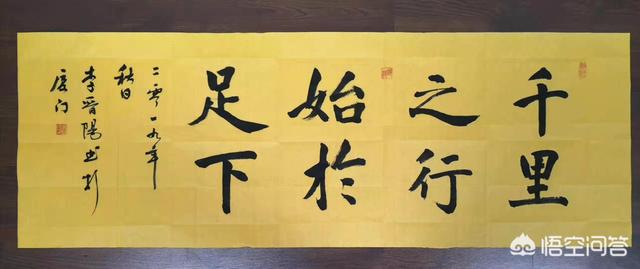 千里
之行
始於
足下
二零一九年
秋日
李晋陽书於
厦门
悟空问答